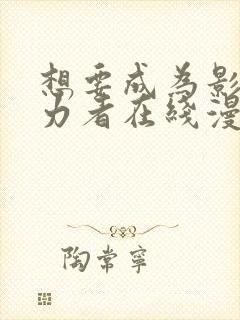 想要成为影
力者在线漫
陶常宁